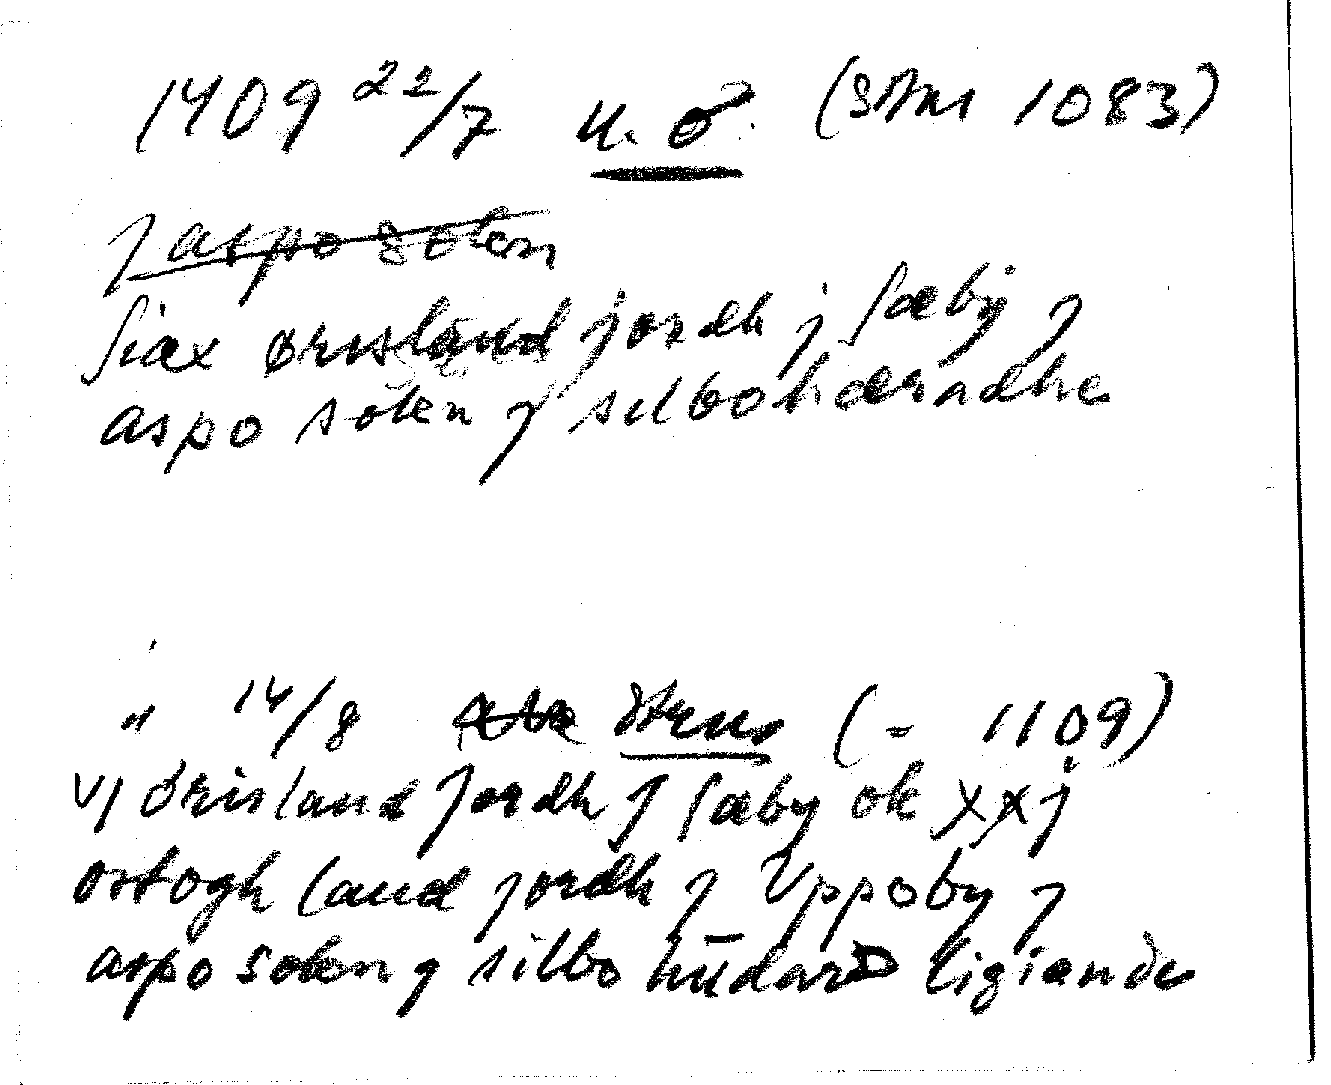 1409 22/7 u. o. (SDns 1083)
j aspo soken
siax ørisland jordh j sæby j
aspo soken j silbohæradhe
" 14/8 Strns (- 1109)
vj örisland jordh j sæby ok xxj
örtogh land jordh j Vppoby j
aspo soken j silbo hūdar ligiande